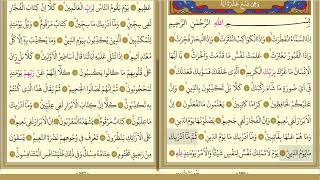 وَهِيَ تِسْعَ عَشْرَةَ اٰيَةً
بِسْمِ اللهِ الرَّحْمٰنِ الرَّحِيمِ
اِذَا السَّمَاءُ انْفَطَرَتْ وَاِذَا الْكَوَاكِبُ انْتَثَرَتْ وَاِذَا الْبِحَارُ
فُجِّرَتْ وَاِذَا الْقُبُورُ بُعْثِرَتْ عَلِمَتْ نَفْسٌ مَا قَدَّمَتْ وَاَخَّرَتْ يَا اَيُّهَا
الْاِنْسَانُ مَا غَرَّكَ بِرَبِّكَ الْكَرِيمِ اَلَّذِي خَلَقَكَ فَسَوّٰيكَ فَعَدَلَكَ
فِي اَيِّ صُورَةٍ مَا شَاءَ رَكَّبَكَ كَلَّا بَلْ تُكَذِّبُونَ بِالدِّينِ
وَاِنَّ عَلَيْكُمْ لَحَافِظِينَ كِرَامًا كَاتِبِينَ يَعْلَمُونَ مَا تَفْعَلُونَ اِنَّ
الْاَبْرَارَ لَفِي نَعِيمٍ وَاِنَّ الْفُجَّارَ لَفِي جَحِيمٍ يَصْلَوْنَهَا يَوْمَ الدِّينِ
وَمَا هُمْ عَنْهَا بِغَائِبِينَ وَمَا اَدْرٰيكَ مَا يَوْمُ الدِّينِ ثُمَّ مَا اَدْرٰيكَ
مَا يَوْمُ الدِّينِ يَوْمَ لَا تَمْلِكُ نَفْسٌ لِنَفْسٍ شَيْئًا وَالْاَمْرُ يَوْمَئِذٍ لِلّٰهِ
عَظِيمٍ يَوْمَ يَقُومُ النَّاسُ لِرَبِّ الْعَالَمِينَ كَلَّا اِنَّ كِتَابَ الْفُجَّارِ
لَفِي سِجِّينٍ وَمَا اَدْرٰيكَ مَا سِجِّينٌ كِتَابٌ مَرْقُومٌ وَيْلٌ يَوْمَئِذٍ
لِلْمُكَذِّبِينَ اَلَّذِينَ يُكَذِّبُونَ بِيَوْمِ الدِّينِ وَمَا يُكَذِّبُ بِهِ اِلَّا كُلُّ
مُعْتَدٍ اَثِيمٍ اِذَا تُتْلٰى عَلَيْهِ اٰيَاتُنَا قَالَ اَسَاطِيرُ الْاَوَّلِينَ كَلَّا بَلْ رَانَ
عَلٰى قُلُوبِهِمْ مَا كَانُوا يَكْسِبُونَ كَلَّا اِنَّهُمْ عَنْ رَبِّهِمْ يَوْمَئِذٍ لَمَحْجُوبُونَ
ثُمَّ اِنَّهُمْ لَصَالُوا الْجَحِيمِ ثُمَّ يُقَالُ هٰذَا الَّذِي كُنْتُمْ بِهِ تُكَذِّبُونَ
كَلَّا اِنَّ كِتَابَ الْاَبْرَارِ لَفِي عِلِّيِّينَ وَمَا اَدْرٰيكَ مَا عِلِّيُّونَ
كِتَابٌ مَرْقُومٌ يَشْهَدُهُ الْمُقَرَّبُونَ اِنَّ الْاَبْرَارَ لَفِي نَعِيمٍ
عَلَى الْاَرَائِكِ يَنْظُرُونَ تَعْرِفُ فِي وُجُوهِهِمْ نَضْرَةَ النَّعِيمِ يُسْقَوْنَ
مِنْ رَحِيقٍ مَخْتُومٍ خِتَامُهُ مِسْكٌ وَفِي ذٰلِكَ فَلْيَتَنَافَسِ الْمُتَنَافِسُونَ